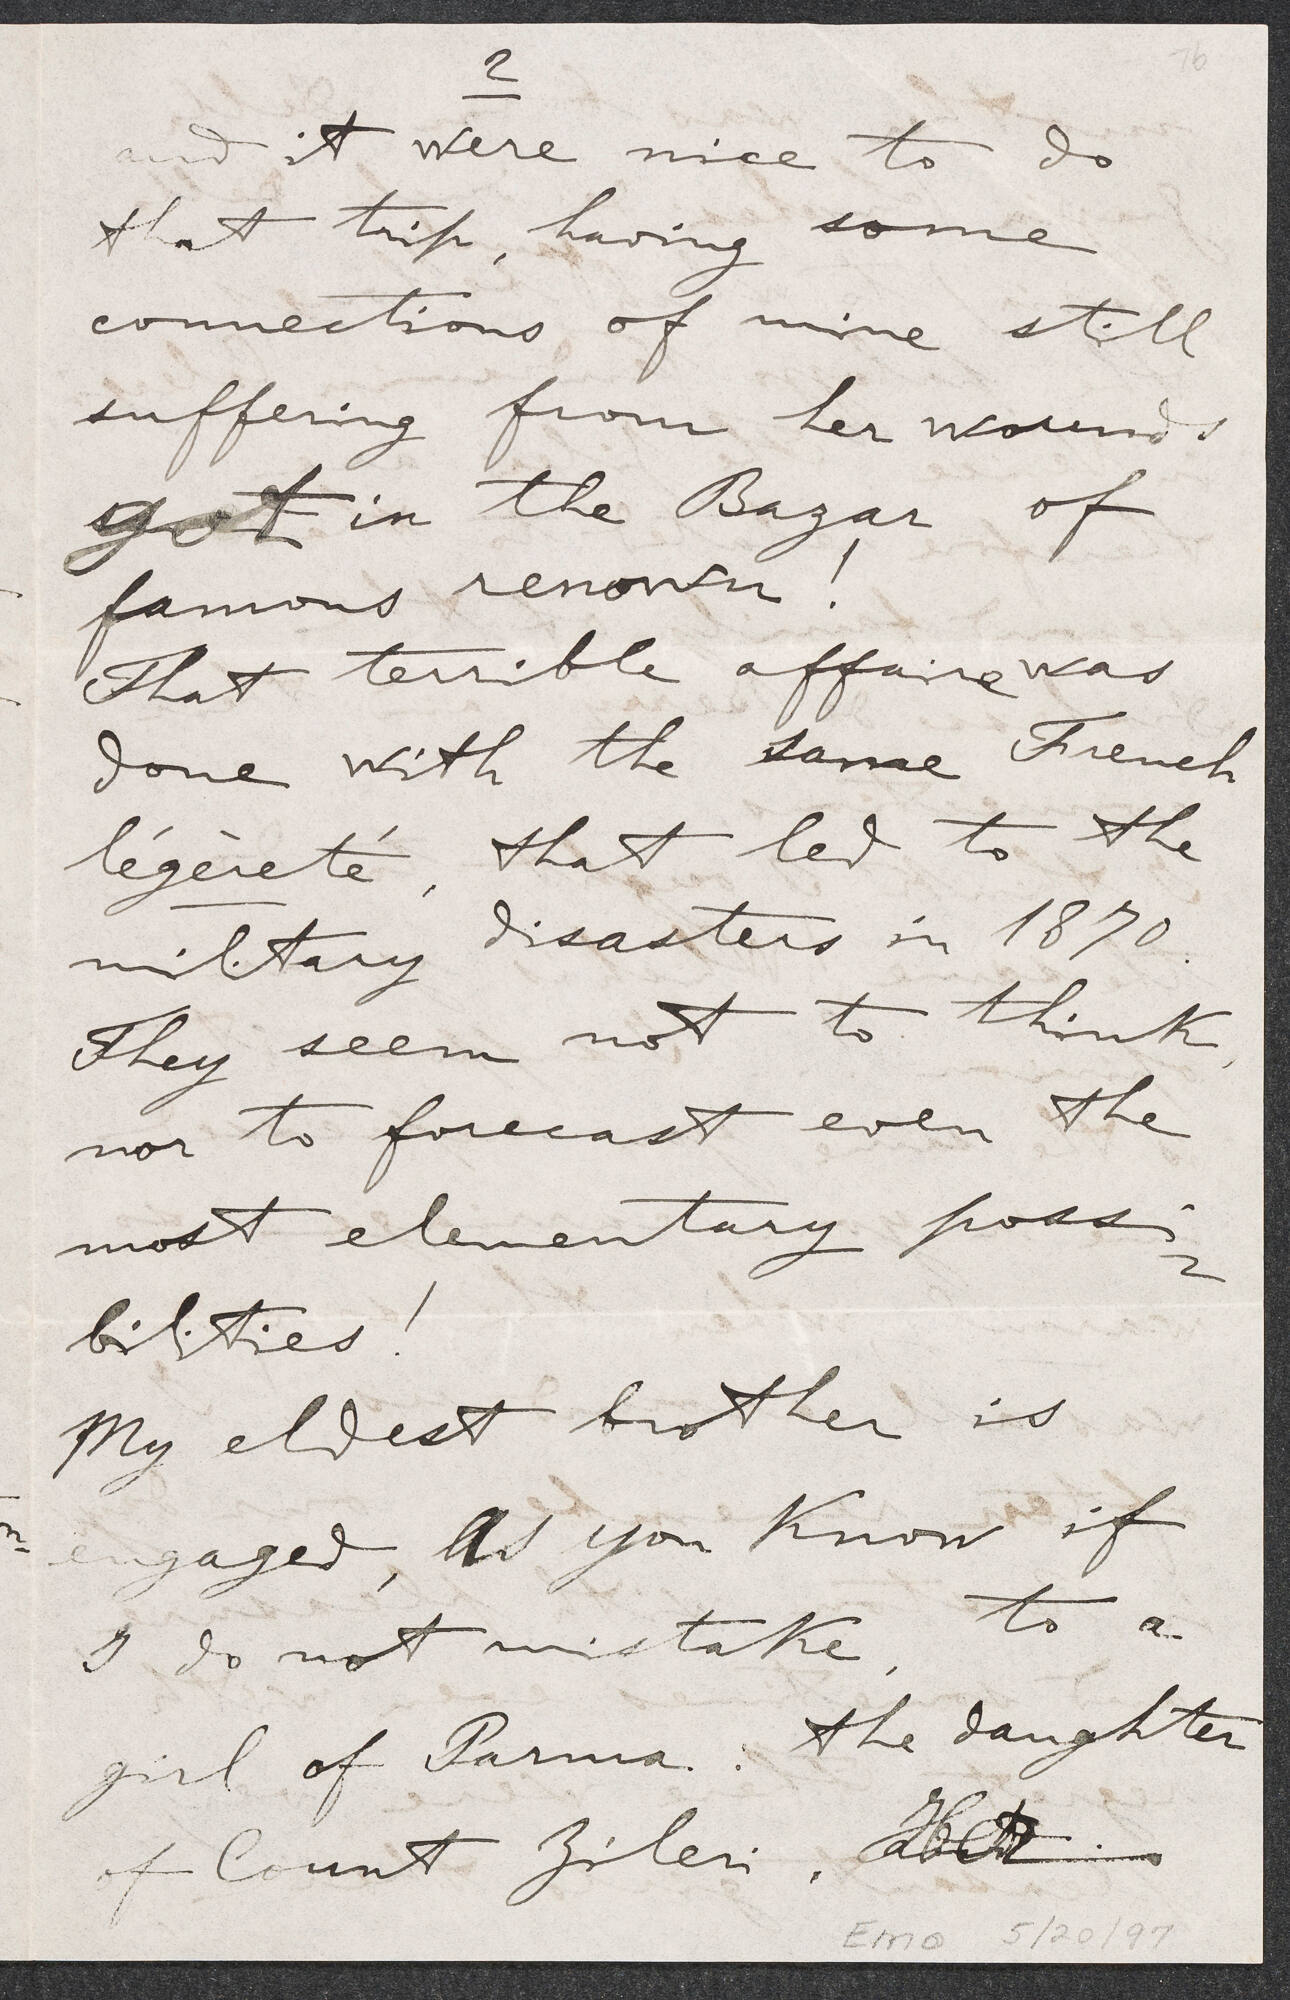 76
2
and it were nice to do
that trip, having some
connections of mine still
suffering from her wounds
got in the Bazar of
famous renown!
That terrible affaire was
done with the same French
légèreté, that led to the
military disasters in 1870.
They seem not to think,
nor to forecast even the
most elementary possi-
bilities!
My eldest brother is
engaged, as you know if
I do not mistake, to a
girl of Parma: the daughter
of Count Zileri.
Emo 5/20/97